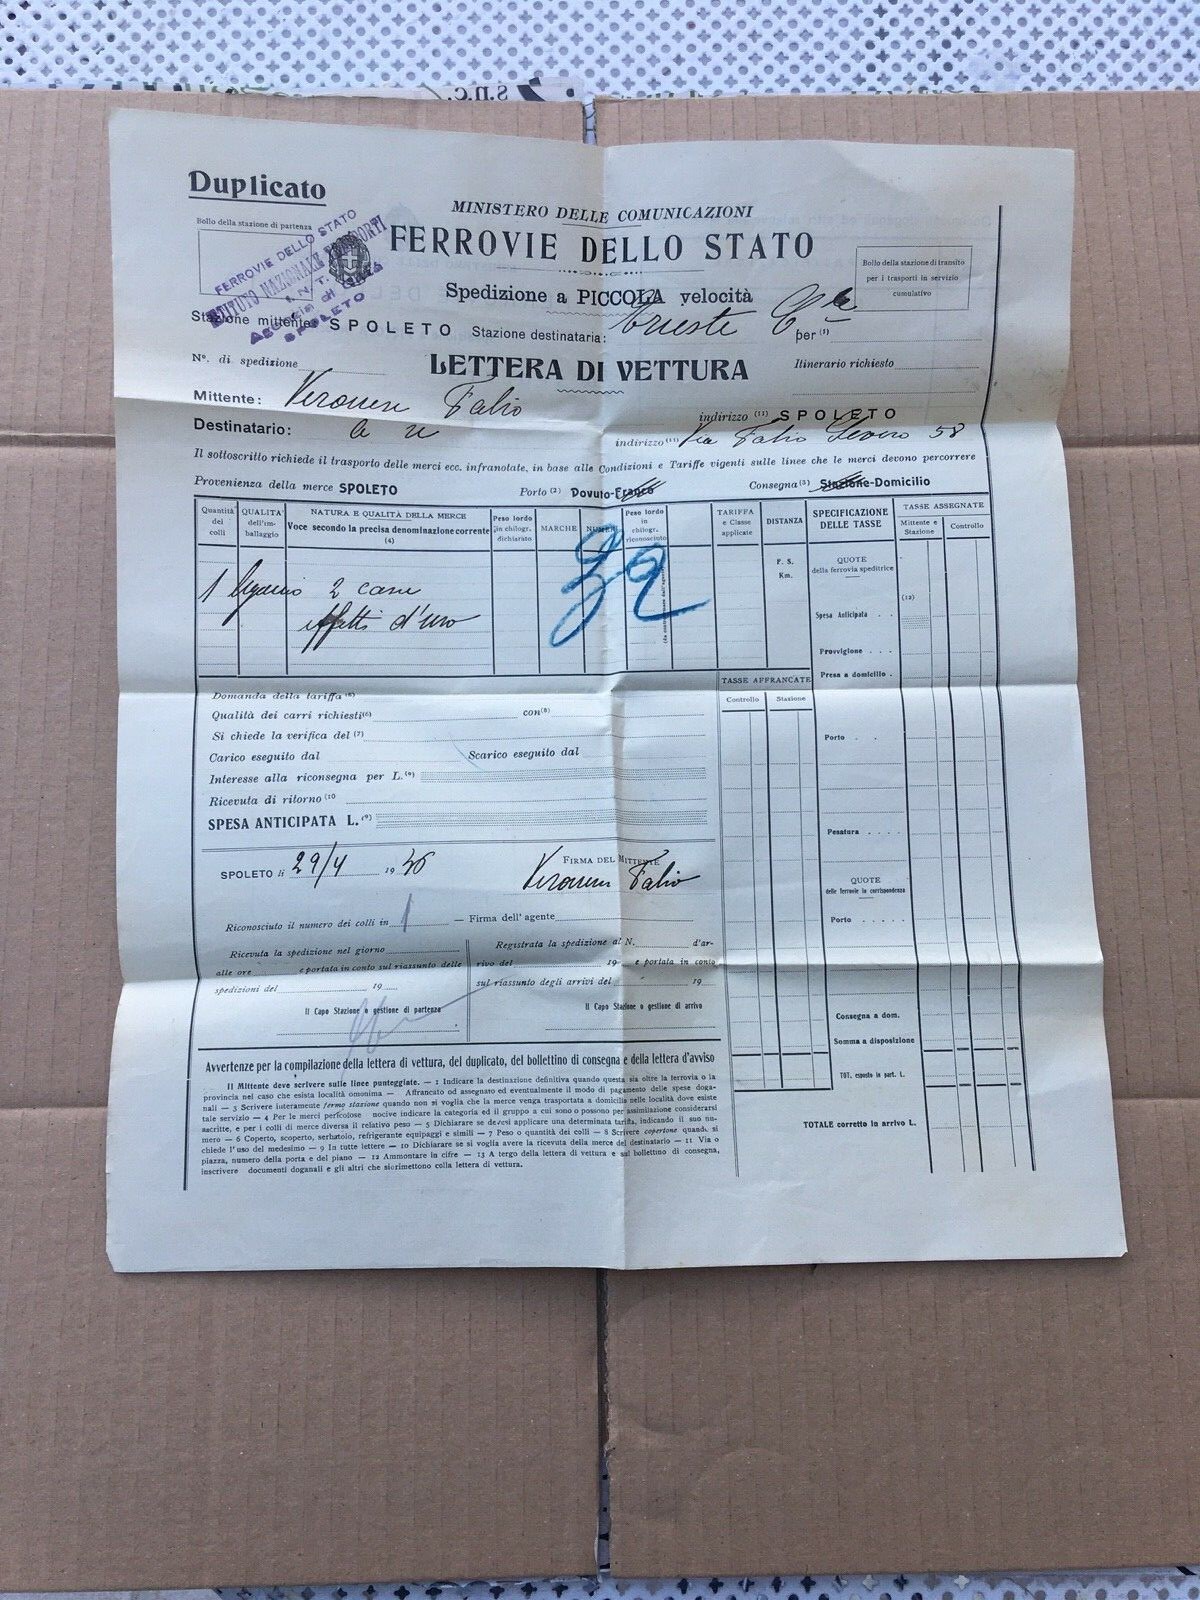 s.n.c.
Duplicato
Bollo della stazione di partenza
FERROVIE DELLO STATO
ISTITUTO NAZIONALE TRASPORTI
I. N. T.
Agenzia di Città
SPOLETO
MINISTERO DELLE COMUNICAZIONI
FERROVIE DELLO STATO
Spedizione a PICCOLA velocità
Bollo della stazione di transito
per i trasporti in servizio
cumulativo
Stazione mittente SPOLETO Stazione destinataria: Trieste C.le per (1)
N°. di spedizione LETTERA DI VETTURA Itinerario richiesto
Mittente: Veronesi Fabio indirizzo (11) SPOLETO
Destinatario: indirizzo (11) Via Fabio Severo 58
Il sottoscritto richiede il trasporto delle merci ecc. infranotate, in base alle Condizioni e Tariffe vigenti sulle linee che le merci devono percorrere
Provenienza della merce SPOLETO Porto (2) Dovuto-Franco Consegna (3) Stazione-Domicilio
Quantità dei colli
QUALITA' dell'imballaggio
NATURA E QUALITÀ DELLA MERCE
Voce secondo la precisa denominazione corrente
(4)
Peso lordo in chilogr. dichiarato
MARCHE
NUMERI
Peso lordo in chilogr. riconosciuto
TARIFFA e Classe applicate
DISTANZA
SPECIFICAZIONE DELLE TASSE
TASSE ASSEGNATE
Mittente e Stazione
Controllo
P. S.
Km.
QUOTE
della ferrovia speditrice
1 2 casse
effetti d'uso
32
Spesa Anticipata (12)
Provvigione . . .
Presa a domicilio .
TASSE AFFRANCATE
Controllo Stazione
Domanda della tariffa (5)
Qualità dei carri richiesti (6) con (8)
Si chiede la verifica del (7)
Porto . .
Carico eseguito dal Scarico eseguito dal
Interesse alla riconsegna per L. (9)
Ricevuta di ritorno (10
SPESA ANTICIPATA L. (9)
Pesatura . . . .
SPOLETO li 29/4 19 36
FIRMA DEL MITTENTE
Veronesi Fabio
QUOTE
delle ferrovie in corrispondenza
Porto . . . . .
Riconosciuto il numero dei colli in 1 — Firma dell'agente
Ricevuta la spedizione nel giorno
alle ore e portata in conto sul riassunto delle
spedizioni del 19
Il Capo Stazione o gestione di partenza
Registrata la spedizione al N. d'ar-
rivo del 19 e portata in conto
sul riassunto degli arrivi del 19
Il Capo Stazione o gestione di arrivo
Consegna a dom.
Somma a disposizione
TOT. esposto in part. L.
TOTALE corretto in arrivo L.
Avvertenze per la compilazione della lettera di vettura, del duplicato, del bollettino di consegna e della lettera d'avviso
Il Mittente deve scrivere sulle linee punteggiate. — 1 Indicare la destinazione definitiva quando questa sia oltre la ferrovia o la
provincia nel caso che esista località omonima — Affrancato od assegnato ed eventualmente il modo di pagamento delle spese doga-
nali — 3 Scrivere interamente fermo stazione quando non si voglia che la merce venga trasportata a domicilio nelle località dove esiste
tale servizio — 4 Per le merci pericolose nocive indicare la categoria ed il gruppo a cui sono o possono per assimilazione considerarsi
ascritte, e per i colli di merce diversa il relativo peso — 5 Dichiarare se devesi applicare una determinata tariffa, indicando il suo nu-
mero — 6 Coperto, scoperto, serbatoio, refrigerante equipaggi e simili — 7 Peso o quantità dei colli — 8 Scrivere copertone quando si
chiede l'uso del medesimo — 9 In tutte lettere — 10 Dichiarare se si voglia avere la ricevuta della merce del destinatario — 11 Via o
piazza, numero della porta e del piano — 12 Ammontare in cifre — 13 A tergo della lettera di vettura e sul bollettino di consegna,
inscrivere documenti doganali e gli altri che si rimettono colla lettera di vettura.